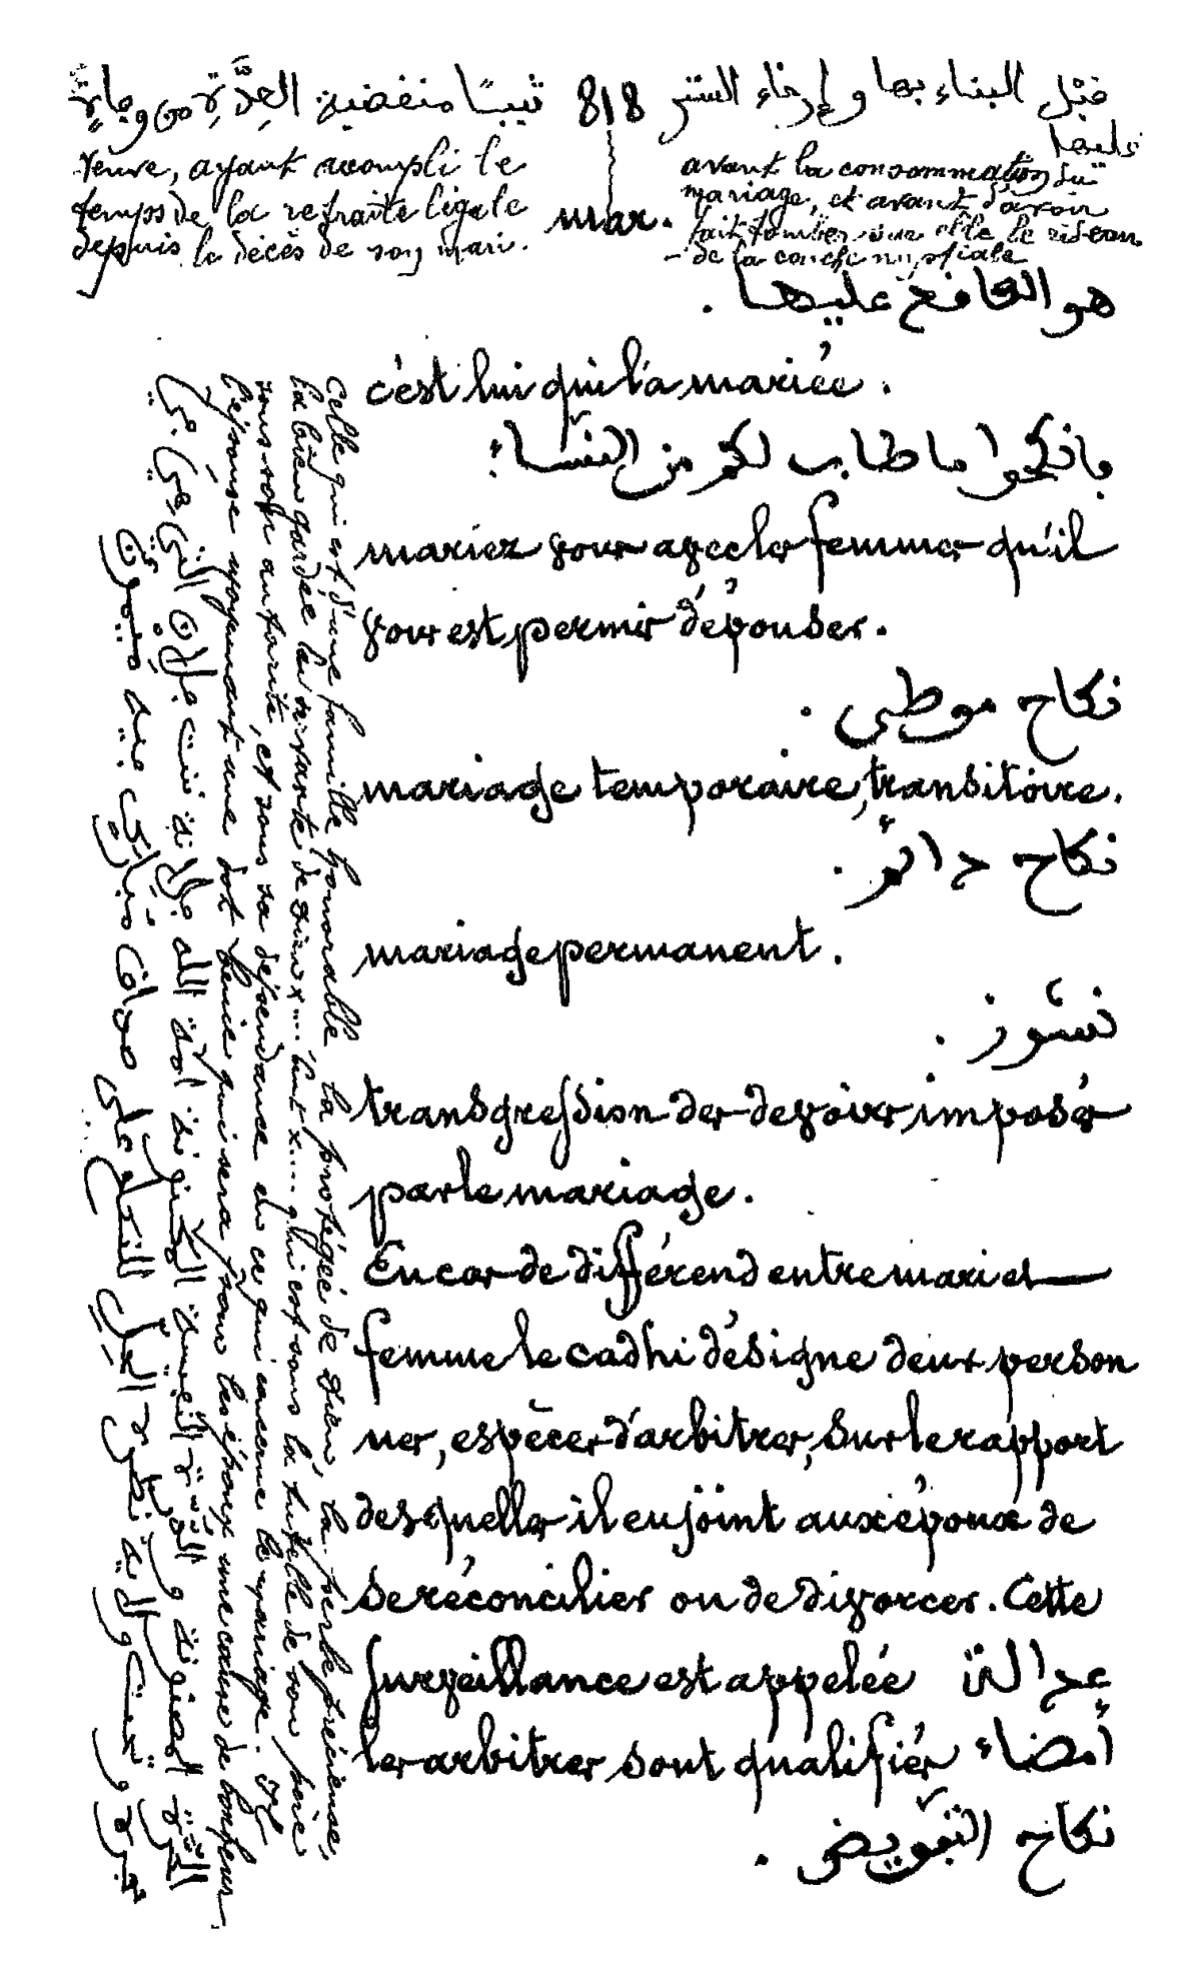 قبل البناء بها وإرخاء الستر
عليها
818
ثيبا منقضية العدة من وفاة
veuve, ayant accompli le
temps de la retraite légale
depuis le décès de son mari.
mar.
avant la consommation du
mariage, et avant d'avoir
fait tomber sur elle le rideau
de la couche nuptiale
هو الناكح عليها .
c'est lui qui l'a mariée .
فانكحوا ما طاب لكم من النساء
mariez vous avec les femmes qu'il
vous est permis d'épouser .
نكاح موطى .
mariage temporaire, transitoire .
نكاح دائم .
mariage permanent .
نشوز .
transgression des devoirs imposés
par le mariage .
En cas de différend entre mari et
femme le cadhi désigne deux person
nes, espèces d'arbitres, sur le rapport
desquelles il enjoint aux époux de
se réconcilier ou de divorcer. Cette
surveillance est appelée عدالة
les arbitres sont qualifiés أمضاء
نكاح التفويض .
Celle qui est d'une famille honorable la protégée de Dieu, la perle précieuse,
la bien gardée la servante de Dieu x.... bent x.... qui est sous la tutelle de son père
sous son autorité, et sous sa dépendance en ce qui concerne le mariage. Il
l'épouse moyennant une dot bénie qui sera pour les époux une cause de bonheur